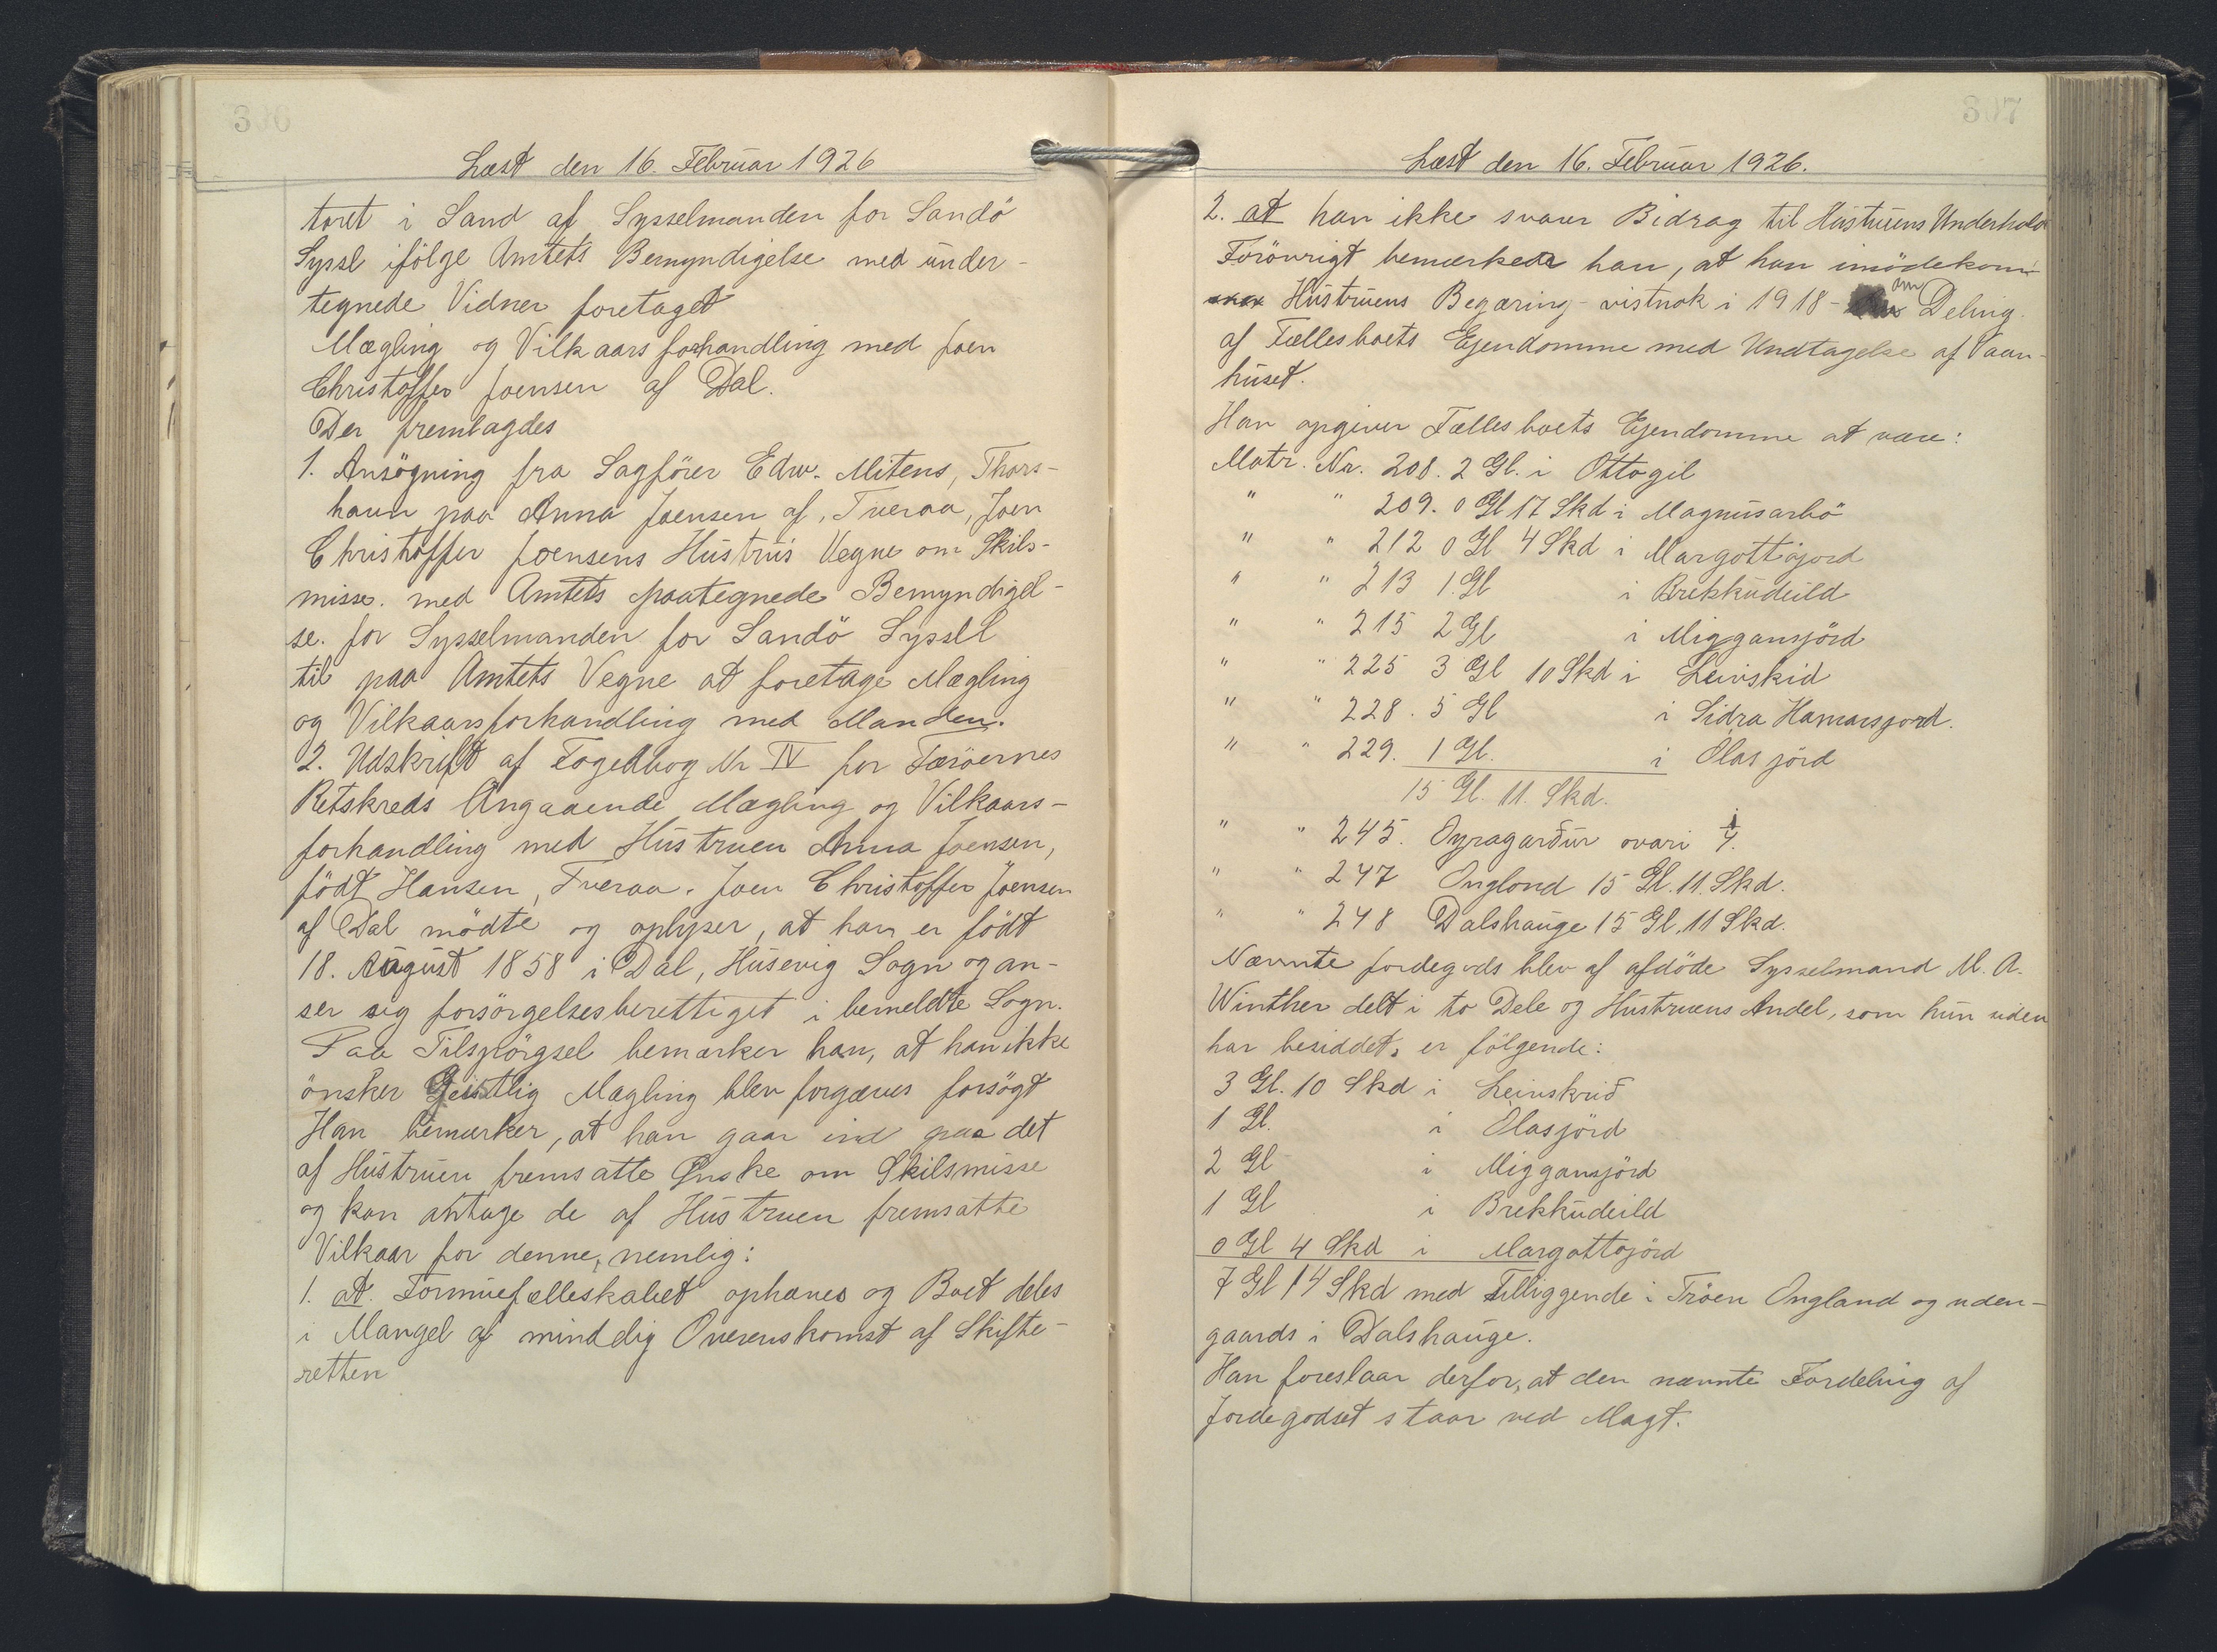 Læst den 16. Februar 1926
toret i Sand af Sysselmanden for Sandö
Syssl ifölge Amtets Bemyndigelse med under-
tegnede Vidner foretaget
Mægling og Vilkaarsforhandling med Joen
Christoffer Joensen af Dal.
Der fremlagdes
1. Ansögning fra Sagförer Edw. Mitens, Thors-
havn paa Anna Joensen af, Tveraa, Joen
Christoffer Joensens Hustrus Vegne om Skils-
misse. med Amtets paategnede Bemyndigel-
se. for Sysselmanden for Sandö Syssel
til paa Amtets Vegne at foretage Mægling
og Vilkaarsforhandling med Manden.
2. Udskrift af Fogedbog Nr IV for Færöernes
Retskreds Angaaende Mægling og Vilkaars-
forhandling med Hustruen Anna Joensen,
födt Hansen, Tveraa. Joen Christoffer Joensen
af Dal mödte og oplyser, at han er födt
18. August 1858 i Dal, Husevig Sogn og an-
ser sig forsörgelsesberettiget i bemeldte Sogn.
Paa Tilspörgsel bemærker han, at han ikke
önsker Geistlig Mægling blev forgæves forsögt
Han bemærker, at han gaar ind paa det
af Hustruen fremsatte Önske om Skilsmisse
og kan antage de af Hustruen fremsatte
Vilkaar for denne, nemlig:
1. at. Formuefælleskabet ophæves og Boet deles
i Mangel af mindelig Overenskomst af Skifte-
retten
307
Læst den 16. Februar 1926.
2. at han ikke svarer Bidrag til Hustruens Underhold
Forövrigt bemærkede han, at han imödekom
Hustruens Begæring - vistnok i 1918 - om Deling
af Fællesboets Ejendomme med Undtagelse af Vaan-
huset.
Han opgiver Fællesboets Ejendomme at være:
Matr. Nr. 208. 2 Gl. i Ottogil
" " 209. 0 Gl 17 Skd i Magnusarbö
" " 212 0 Gl 4 Skd i Margottöjord
" " 213 1. Gl i Brekkudeild
" " 215 2 Gl i Miggansjörd
" " 225 3 Gl 10 Skd i Leivskid
" " 228. 5 Gl i Sidra Hamarsjord.
" " 229. 1 Gl. i Ólasjörd
15 Gl. 11. Skd.
" " 245. Oyragarður ovari 1/4.
" " 247 Onglond 15 Gl. 11. Skd.
" " 248 Dalshauge 15 Gl, 11 Skd.
Nævnte Jordegods blev af afdöde Sysselmand M. A.
Winther delt i to Dele og Hustruens Andel, som hun siden
har besiddet, er fölgende:
3 Gl. 10 Skd i Leivskrið
1 Gl. i Ólasjörd
2 Gl i Miggansjörd
1 Gl i Brekkudeild
0 Gl 4 Skd i Margottojörd
7 Gl 14 Skd med Tilliggende i Tröen Ongland og uden-
gaards i Dalshauge.
Han foreslaar derfor, at den nævnte Fordeling af
Jordegodset staar ved Magt.